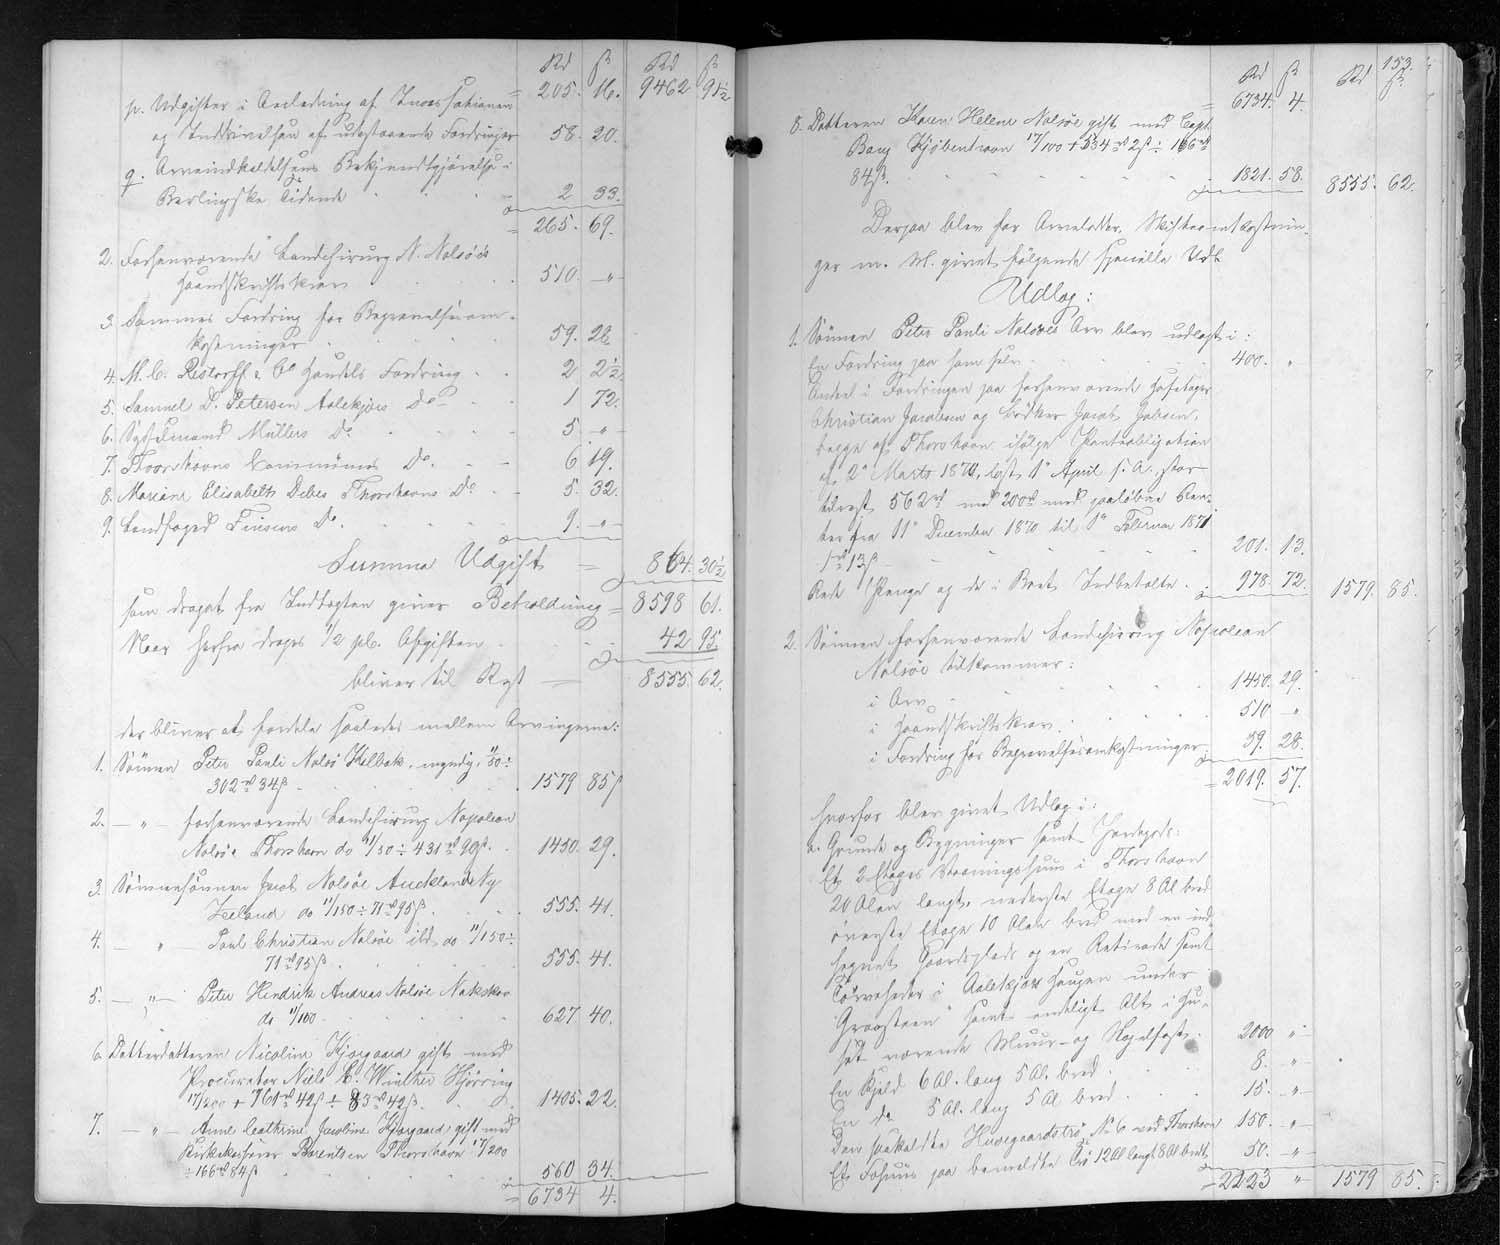 Rd ß Rd ß
p. Udgifter i Anledning af Incassationen 205. 16. 9462 91½
og Inddrivelsen af udestaaende Fordringer 58. 20.
q. Arveindkaldelsens Bekjendtgjörelse i
Berlingske Tidende 2 33.
265. 69.
2. Forhenværende Landchirurg N. Nolsöes
Haandskriftskrav 510. -"-
3. Sammes Fordring for Begravelsesom-
kostninger 59. 28
4. M. C. Restorff & Co Handels Fordring 2 2½
5. Samuel D. Petersen Aalekjærs Do 1 72.
6. Sysselmand Müllers Do 5. -"-
7. Thorshavns Communes Do. 6 19.
8. Mariane Elisabeth Debes Thorshavns Do 5. 32.
9. Landfoged Finsens Do. 9. -"-
Summa Udgift = 864. 30½
som draget fra Indtægten giver Beholdning = 8598 61.
Naar herfra drages 1/2 pCt. Afgiften 42 95.
bliver til Rest 8555. 62.
der bliver at fordele saaledes mellem Arvingerne:
1. Sönnen Peter Pauli Nolsö Kelbak, myndig, 11/50 ÷
302 rd 34 ß 1579 85 ß
2. — " — forhenværende Landchirurg Napoleon
Nolsöe Thorshavn do 11/50 ÷ 431 rd 90 ß. 1450. 29.
3. Sönnesönnen Jacob Nolsöe Auckland Ny
Zeeland do 11/150 ÷ 71 rd 95 ß 555. 41.
4. — " — Poul Christian Nolsöe ibd. do 11/150 ÷
71 rd 95 ß 555. 41.
5. — " — Peter Hendrik Andreas Nolsöe Nakskov
do 11/100 627. 40.
6. Datterdatteren Nicoline Kjergaard gift med
Procurator Niels C. Winther Hjörring
17/200 + 761 rd 42 ß ÷ 83 rd 42 ß. 1405. 22.
7. — " — Anne Cathrine Jacobine Kjærgaard gift med
Kirkekasserer Berentsen Thorshavn 17/200
÷ 166 rd 84 ß 560 34.
= 6734 4.
153.
Rd ß Rd ß
= 6734. 4.
8. Datteren Karen Helene Nolsöe gift med Capt.
Bang Kjöbenhavn 17/100 + 534 rd 2 ß ÷ 166 rd
84 ß. 1821. 58. 8555. 62.
Derpaa blev for Arvelodder, Skifteomkostnin-
ger m. M. givet fölgende specielle Udl.
Udlæg:
1. Sönnen Peter Pauli Nolsöes Arv blev udlagt i:
En Fordring paa ham selv 400. "
Andeel i Fordringen paa forhenværende
Christian Jacobsen og Bödker Jacob Jobsen,
begge af Thorshavn ifölge Panteobligation
af 2 Marts 1870, læst 1 April s. A., stor
tilrest 562 rd med 200 rd med paalöbne Ren-
ter fra 11 December 1870 til 1 Februar 1871
1 rd 13 ß 201. 13.
Rest Penge og de i Boet Indbetalte 978. 72. 1579. 85.
2. Sönnen forhenværende Landchirurg Napoleon
Nolsöe tilkommer:
i Arv 1450. 29.
i Haandskriftskrav 510 -"-
i Fordring for Begravelsesomkostninger. 59. 28.
= 2019. 57.
hvorfor blev givet Udlæg i:
a. Grunde og Bygninger samt Jordegods:
Et 2 Etages Vaaningshuus i Thorshavn
20 Alen langt, nederste Etage 8 Al bred
överste Etage 10 Alen bred med en ind-
hegnet Gaardsplads og en Retirade samt
Törveheder i Aalekjær Haugen under
"Graasteen" samt endeligt Alt i Hu-
set værende Muur- og Nagelfast. 2000 "
En Kjeld 6 Al. lang 5 Al. bred 8. "
En do 5 Al. lang 5 Al bred 15. -"-
Den saakaldte Huusgaardströ No 6 ved Thorshavn 150. -"-
Et Fæhuus paa bemeldte Trö 12 Al langt 8 Al bredt 50. -"-
= 2223 " 1579 85.